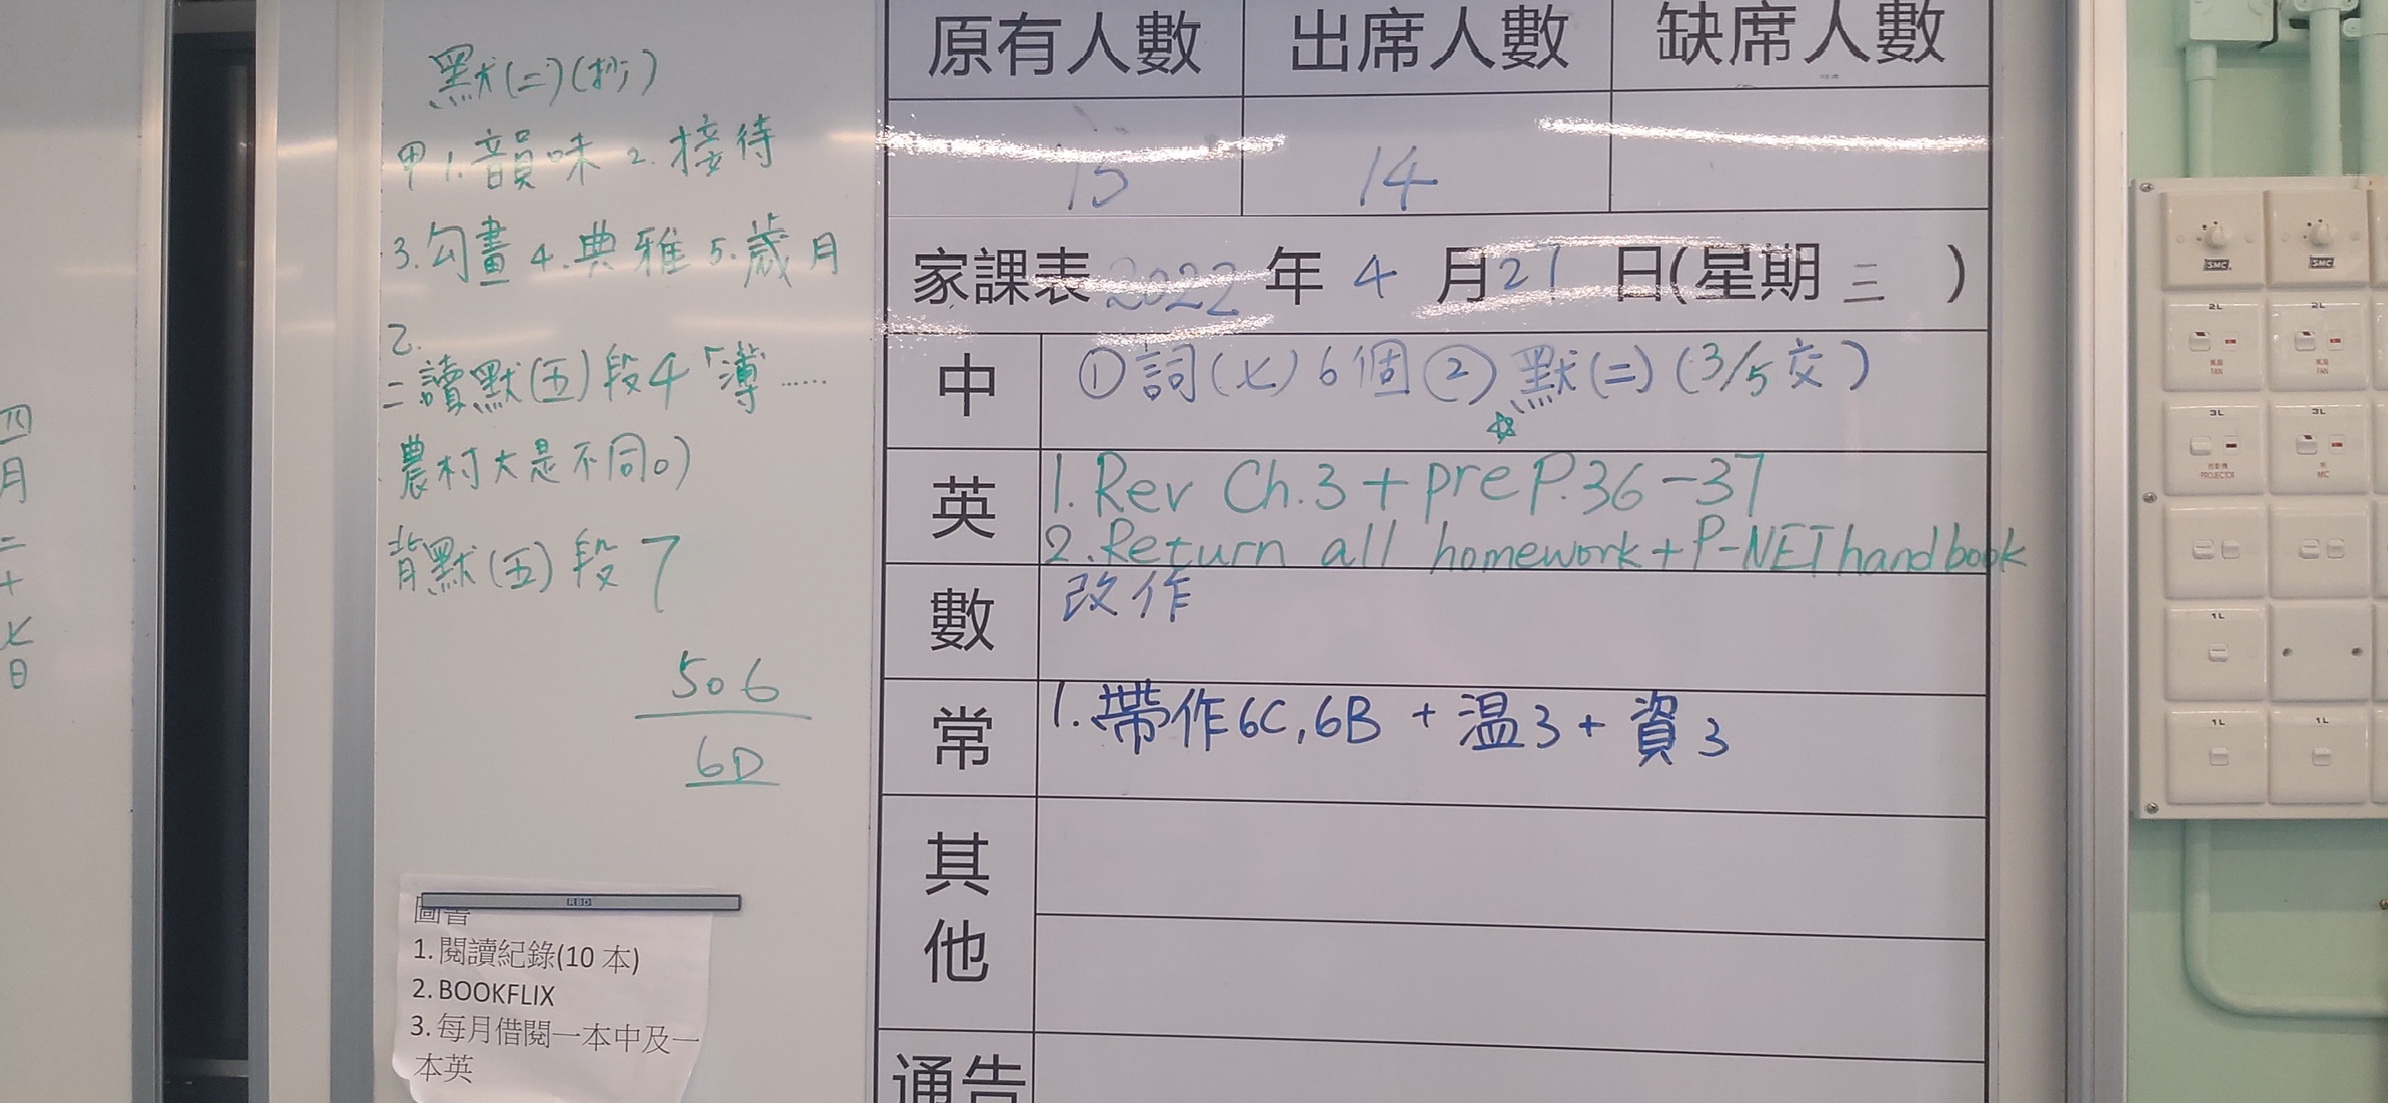 四月二十七日
默(二)(抄)
甲1.韻味 2.接待
3.勾畫 4.典雅 5.歲月
乙.
二讀默(五)段4「薄……
農村大是不同。)
背默(五)段7
506
6D
RBD
圖書
1. 閱讀紀錄(10 本)
2. BOOKFLIX
3. 每月借閱一本中及一
本英
原有人數 出席人數 缺席人數
15 14
家課表 2022 年 4 月 27 日(星期 三 )
中 ①詞(七)6個②默(二)(3/5交)
英 1. Rev Ch.3 + pre P.36-37
2. Return all homework + P-NET handbook
數 改作
常 1.帶作6C,6B + 温3 + 資3
其他
通告
SMC SMC
2L 2L
風扇 風扇
FAN FAN
3L 3L
投影機
PROJECTOR MIC
1L
1L 1L